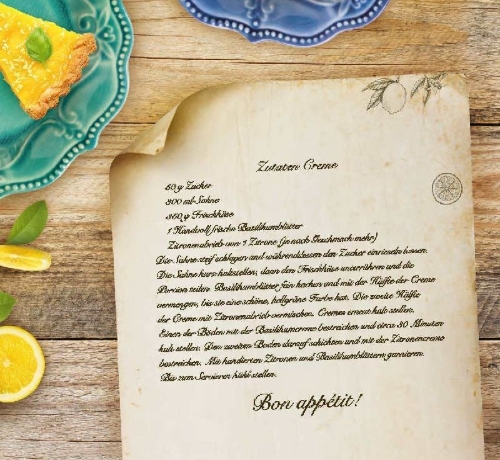 Zutaten Creme
50 g Zucker
300 ml Sahne
360 g Frischkäse
1 Handvoll frische Basilikumblätter
Zitronenabrieb von 1 Zitrone (je nach Geschmack mehr)
Die Sahne steif schlagen und währenddessen den Zucker einrieseln lassen.
Die Sahne kurz kaltstellen, dann den Frischkäse unterrühren und die
Portion teilen. Basilikumblätter fein hacken und mit der Hälfte der Creme
vermengen, bis sie eine schöne, hellgrüne Farbe hat. Die zweite Hälfte
der Creme mit Zitronenabrieb vermischen. Cremes erneut kalt stellen.
Einen der Böden mit der Basilikumcreme bestreichen und circa 30 Minuten
kalt stellen. Den zweiten Boden darauf schichten und mit der Zitronencreme
bestreichen. Mit kandierten Zitronen und Basilikumblättern garnieren.
Bis zum Servieren kühl stellen.
Bon appétit!